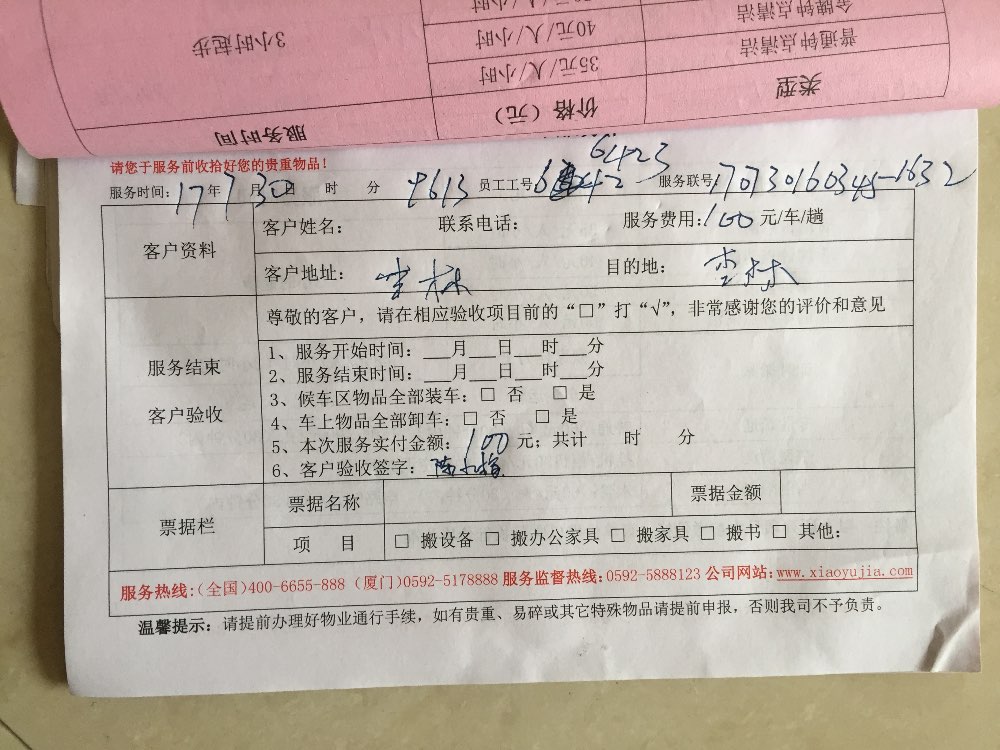 服务时间 价格（元） 类型
3小时起步 35元/人/小时 普通钟点清洁
40元/人/小时 金牌钟点清洁
请您于服务前收拾好您的贵重物品！
6423
服务时间：17年7月30日 时 分 9613 员工工号 服务联号170730160345-1632
客户资料
客户姓名： 联系电话： 服务费用：100元/车/趟
客户地址： 杏林 目的地： 杏林
尊敬的客户，请在相应验收项目前的“□”打“√”，非常感谢您的评价和意见
服务结束
客户验收
1、服务开始时间：___月___日___时___分
2、服务结束时间：___月___日___时___分
3、候车区物品全部装车：□ 否 □ 是
4、车上物品全部卸车：□ 否 □ 是
5、本次服务实付金额：100元；共计 时 分
6、客户验收签字：
票据栏
票据名称 票据金额
项 目 □ 搬设备 □ 搬办公家具 □ 搬家具 □ 搬书 □ 其他：
服务热线：（全国）400-6655-888（厦门）0592-5178888 服务监督热线：0592-5888123 公司网站：www.xiaoyujia.com
温馨提示：请提前办理好物业通行手续，如有贵重、易碎或其它特殊物品请提前申报，否则我司不予负责。